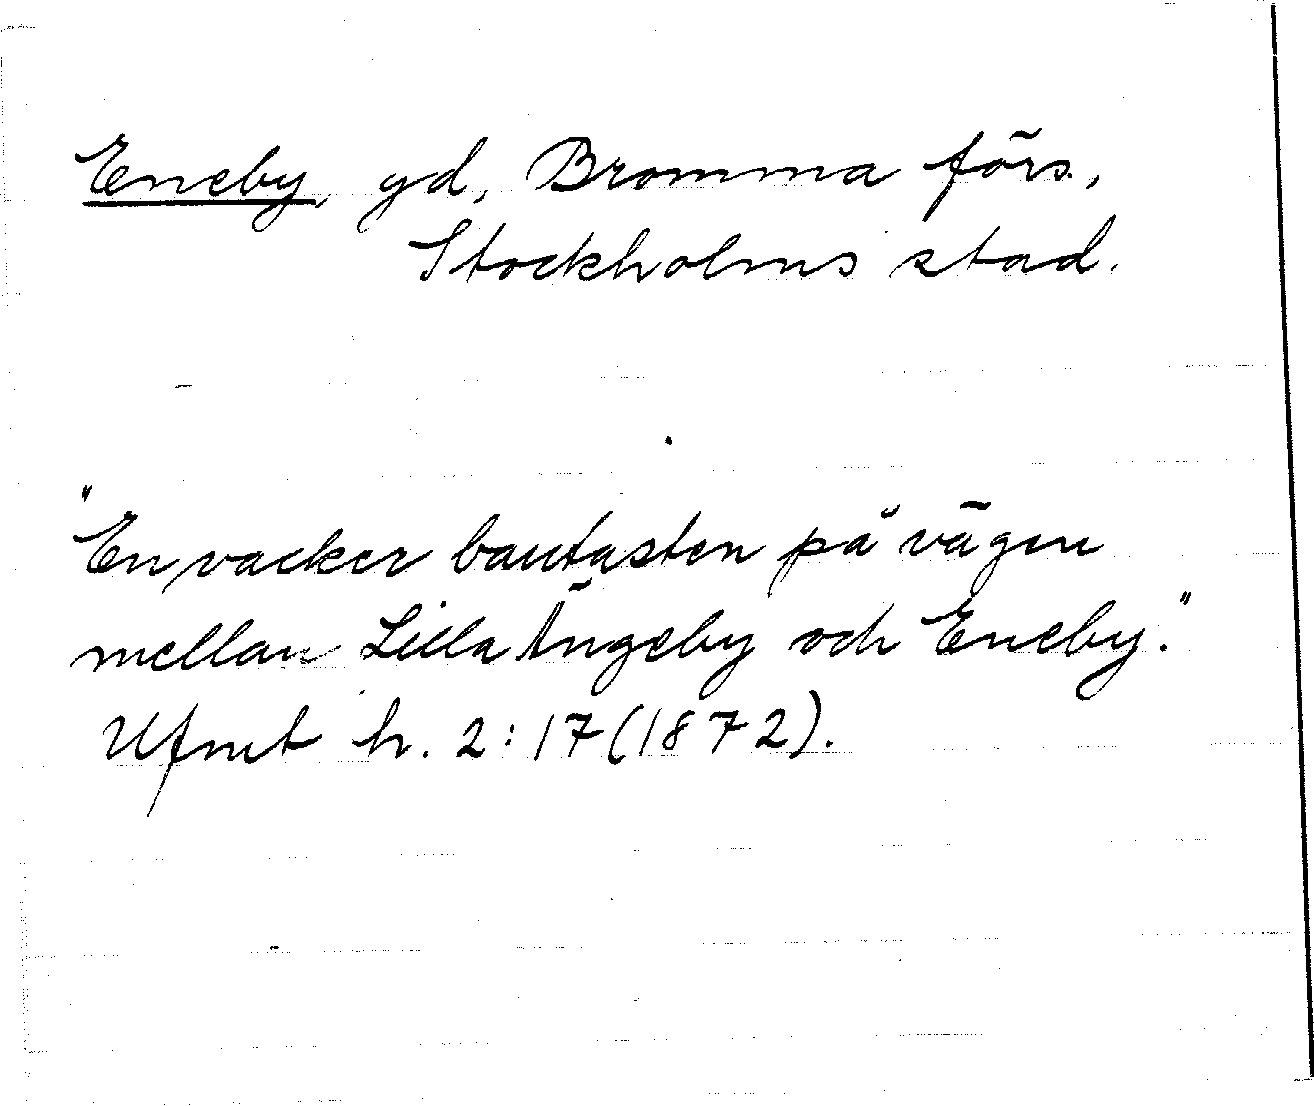 Eneby, gd, Bromma förs.,
Stockholms stad.
"En vacker bautasten på vägen
mellan Lilla Ängeby och Eneby."
Ufmt h. 2:17 (1872).